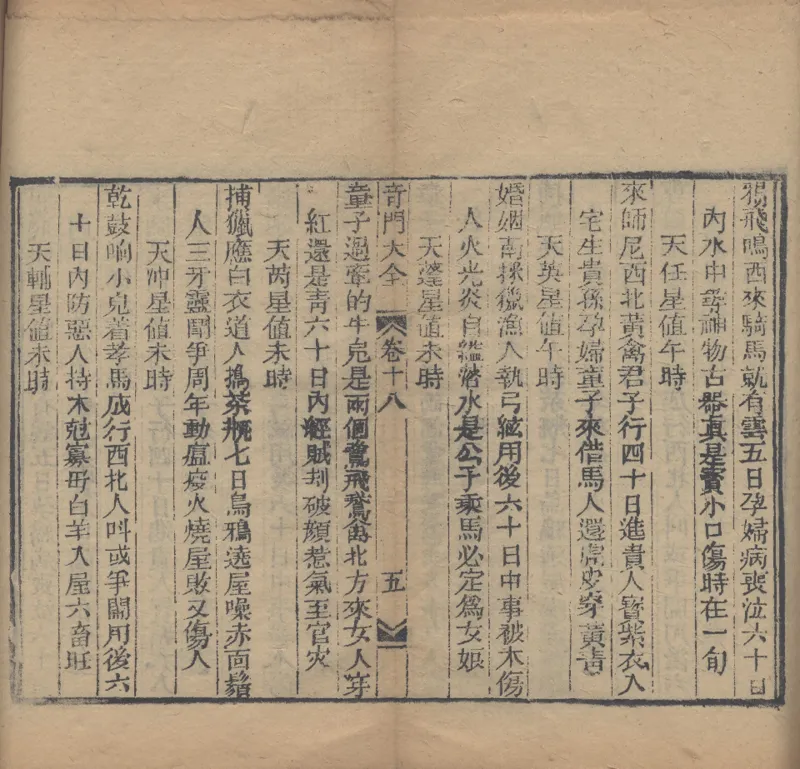 鴉飛鳴西來騎馬就有雲五日孕婦病喪泣六十日
內水中尋補物古器真是實小口傷時在一旬
天任星值午時
來師尼西北黃禽君子行四十日進貴人寶紫衣入
宅生貴孫孕婦童子來借馬人還虎皮穿黃青
天英星值午時
婚姻南採獵漁人執弓絃用後六十日中事被木傷
人火光炎自縊潛水是公子乘馬必定為女娘
天蓬星值未時
奇門大全 卷十八 五
童子過牽的牛皃是兩個鶯飛鵞禽北方來女人穿
紅還是靑六十日內經賊刦破顏惹氣至官灾
天芮星值未時
捕獵應白衣道人搗茶槪七日烏鴉遶屋噪赤面鬍
人三牙靈鬪爭周年動瘟疫火燒屋敗又傷人
天冲星值未時
乾鼓响小皃着孝馬成行西北人叫或爭鬭用後六
十日內防惡人持木尅寡毋白羊入屋六畜旺
天輔星值未時